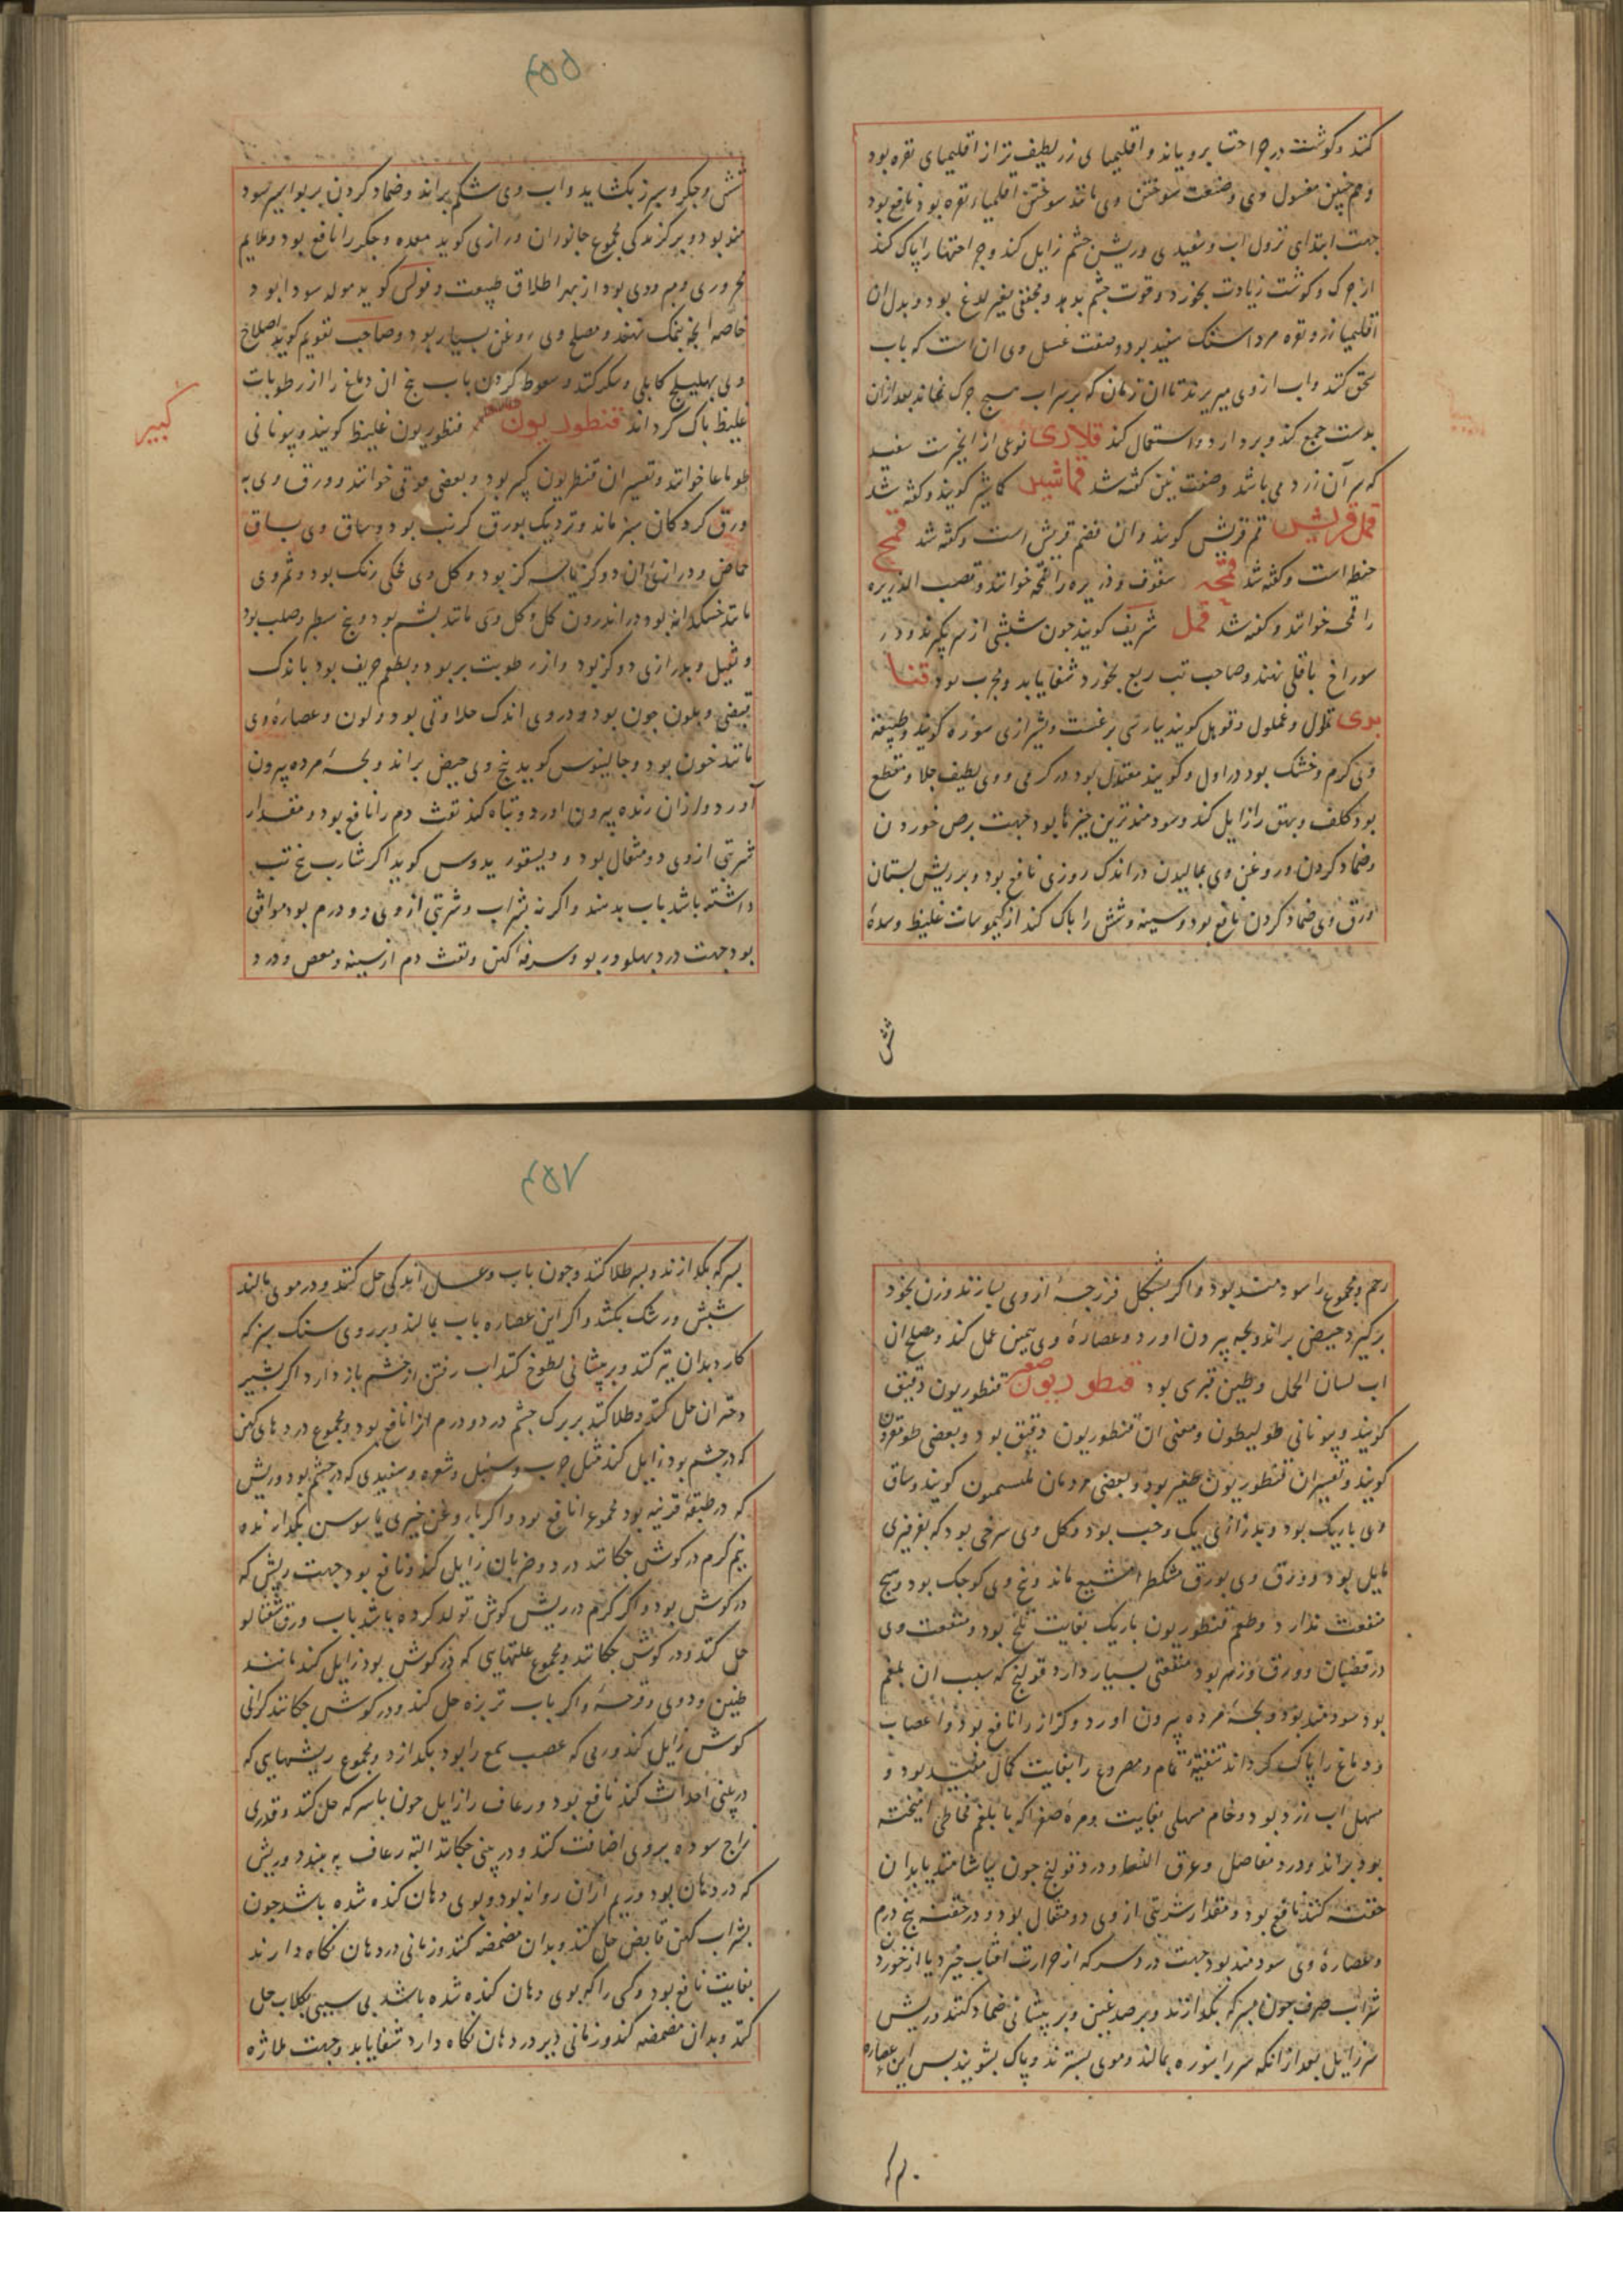 کنند و کوشت در جراحتها برویاند و اقلیمیای زر لطیف تر از اقلیمیای نقره بود
و هم چنین مغسول وی و صنعت سوختن وی مانند سوختن اقلیمیاء نقره بود نافع بود
جهت ابتدای نزول اب و سفیدی و ریش چشم زایل کند و جراحتها را پاک کند
از جرک و کوشت زیادت بخورد و قوت چشم بدهد و مجفف بغیر لدغ بود و بدل ان
اقلیمیا زر و نقره مرداسنک سفید بود و صفت غسل وی ان است که باب
سحق کنند و اب از وی میریزند تا ان زمان که بر سر اب هیچ جرک نماند بعد ازان
بدست جمع کند و بردارد و استعمال کند قلادی نوعی از انجیرست سفید
که سر آن زرد می باشد و صفت تین کفته شد قماشیر کاشیر کویند و کفته شد
قمل قریش قم قریش کویند و ان قضم قریش است و کفته شد قمح
حنطه است و کفته شد قمحه سفوف و ذریره را قمحه خوانند و قصب الذریره
را قمحه خوانند و کفته شد قمل شریف کویند جون شپشی از سر بکیرند و در
سوراخ باقلی نهند و صاحب تب ربع بخورد شفا یابد و مجرب بود قنا
بری قلول و غملول و قوبل کویند بپارسی برغست و بشیرازی سوره کویند و طبیعت
وی کرم و خشک بود در اول و کویند معتدل بود در کرمی و وی لطیف جلا و مقطع
بود کلف و بهق را زایل کند و سودمندترین چیزها بود جهت برص خوردن
و ضماد کردن و روغن وی بمالیدن در اندک روزی نافع بود و بر ریش پستان
ورق وی ضماد کردن نافع بود و سینه و شش را پاک کند از کیموسات غلیظ و سدهٔ
شش
۴۵۵
شش و جکر و سپرز بکشاید و اب وی شکم براند و ضماد کردن بر بواسیر سود
مند بود و بر کزندکی مجموع جانوران و رازی کوید معده و جکر را نافع بود و ملایم
محروری و مبرودی بود از بهر اطلاق طبیعت و فولس کوید مولد سودا بود
خاصه انجه بنمک نهند و مصلح وی روغن بسیار بود و صاحب تقویم کوید اصلاح
وی بهلیلج کابلی و سکر کنند و سعوط کردن باب بیخ ان دماغ را از رطوبات
غلیظ پاک کرداند قنطوریون قنطوریون غلیظ کویند و بیونانی
کبیر
طوماغا خوانند و تفسیر ان قنطریون کبیر بود و بعضی خوانند و ورق وی به
ورق کردکان سبز ماند و نزدیک بورق کرنب بود و ساق وی بساق
حماض و درازی ان دو کز یا سه کز بود و کل وی کحلی رنک بود و ثمر وی
مانند خسکدانه بود در اندرون کل و کل وی مانند پشم بود و بیخ سطبر و صلب بود
و ثقیل و بدرازی دو کز بود و از رطوبت پر بود و بطعم حریف بود با اندک
قبضی و بلون جون بود و در وی اندک حلاوتی بود و لون و عصارهٔ وی
مانند خون بود و جالینوس کوید بیخ وی حیض براند و بجهٔ مرده بیرون
آورد و لرزان زنده بیرون اورد و تباه کند نفث دم را نافع بود و مقدار
شربتی ازوی دو مثقال بود و دیسقوریدوس کوید اکر شارب بیخ تب
داشته باشد باب بدهند و اکر نه بشراب و شربتی از وی دو درم بود موافق
بود جهت درد بهلو و ربو و سرفه کهن و نفث دم از سینه و مغص و درد
رحم و مجموع را سودمند بود و اکر بشکل فرزجهٔ از وی بسازند و زن بخود
برکیرد حیض براند و بجه بیرون اورد و عصارهٔ وی همین عمل کند و مصلح ان
اب لسان الحمل و طین قبرسی بود قنطوریون صغیر قنطوریون دقیق
کویند و بیونانی طولیطون و معنی ان قنطوریون دقیق بود و بعضی
کویند و تفسیر ان قنطوریون صغیر بود و بعضی مردمان کویند و ساق
وی باریک بود و بدرازی یک وجب بود و کل وی سرخی بود که بفرفیری
مایل بود و ورق وی بورق مشکطرامشیع ماند و بیخ وی کوجک بود و هیج
منفعت ندارد و طعم قنطوریون باریک بغایت تلخ بود و منفعت وی
در قضبان و ورق و زهر بود منفعتی بسیار دارد قولنج که سبب ان بلغم
بود سودمند بود و بجهٔ مرده بیرون اورد و کزاز را نافع بود و اعصاب
و دماغ را پاک کرداند تنقیهٔ تمام و مصروع را بغایت کمال مفید بود و
مسهل اب زرد بود و خام مسهلی بغایت و مرهٔ صفرا که با بلغم مخاطی امیخته
بود براند و درد مفاصل و عرق النسا و درد قولنج جون بیاشامند یا بدان
حقنه کنند نافع بود و مقدار شربتی از وی دو مثقال بود و در حقنه پنج درم
و عصارهٔ وی سودمند بود جهت درد سر که از حرارت افتاب خیزد یا از خوردن
شراب صرف جون بسرکه بکدازند و بر صدغین و بر پیشانی ضماد کنند و ریش
سر زایل بعد از انکه سر را بنوره بمالند و موی بسترند و پاک بشویند پس این عصاره
بسرکه
۴۵۷
بسرکه بکدازند و بسر طلا کنند و جون باب و عسل اندکی حل کنند و در موی مالند
شپش و رشک بکشد و اکر این عصاره باب بمالند و بر روی سنک سبز که
کارد بدان تیز کنند و بر پیشانی لطوخ کنند اب رفتن از چشم باز دارد اکر بشیر
دختران حل کنند و طلا کنند بر پلک چشم درد و ورم انرا نافع بود و مجموع دردهای کهن
که در چشم بود زایل کند مثل جرب و سبل و شعره و سفیدی که در چشم بود و ریش
که در طبقهٔ قرنیه بود مجموع را نافع بود و اکر با روغن خیری یا سوسن بکدازند
نیم کرم در کوش جکانند درد و ضربان زایل کند و نافع بود جهت ریش که
در کوش بود و اکر کرم در ریش کوش تولد کرده باشد باب ورق شفتالو
حل کنند و در کوش جکانند و مجموع علتهایی که در کوش بود زایل کند مانند
طنین و دوی و قرحه و اکر باب تربزه حل کنند و در کوش جکانند کرانی
کوش زایل کند و ریحی که عصب سمع را بود بکدازد و مجموع ریشهایی که
در بینی احداث کند نافع بود و رعاف را زایل جون با سرکه حل کنند و قدری
زاج سوده بروی اضافت کنند و در بینی جکانند البته رعاف به بندد و ریش
که در دهان بود و ریم ازان روانه بود و بوی دهان کنده شده باشد جون
بشراب کهن قابض حل کنند و بدان مضمضه کنند و زمانی در دهان نکاه دارند
بغایت نافع بود و کسی را که بوی دهان کنده شده باشد بی سببی بکلاب حل
کنند و بدان مضمضه کند و زمانی دیر در دهان نکاه دارد شفا یابد و جهت ملازه